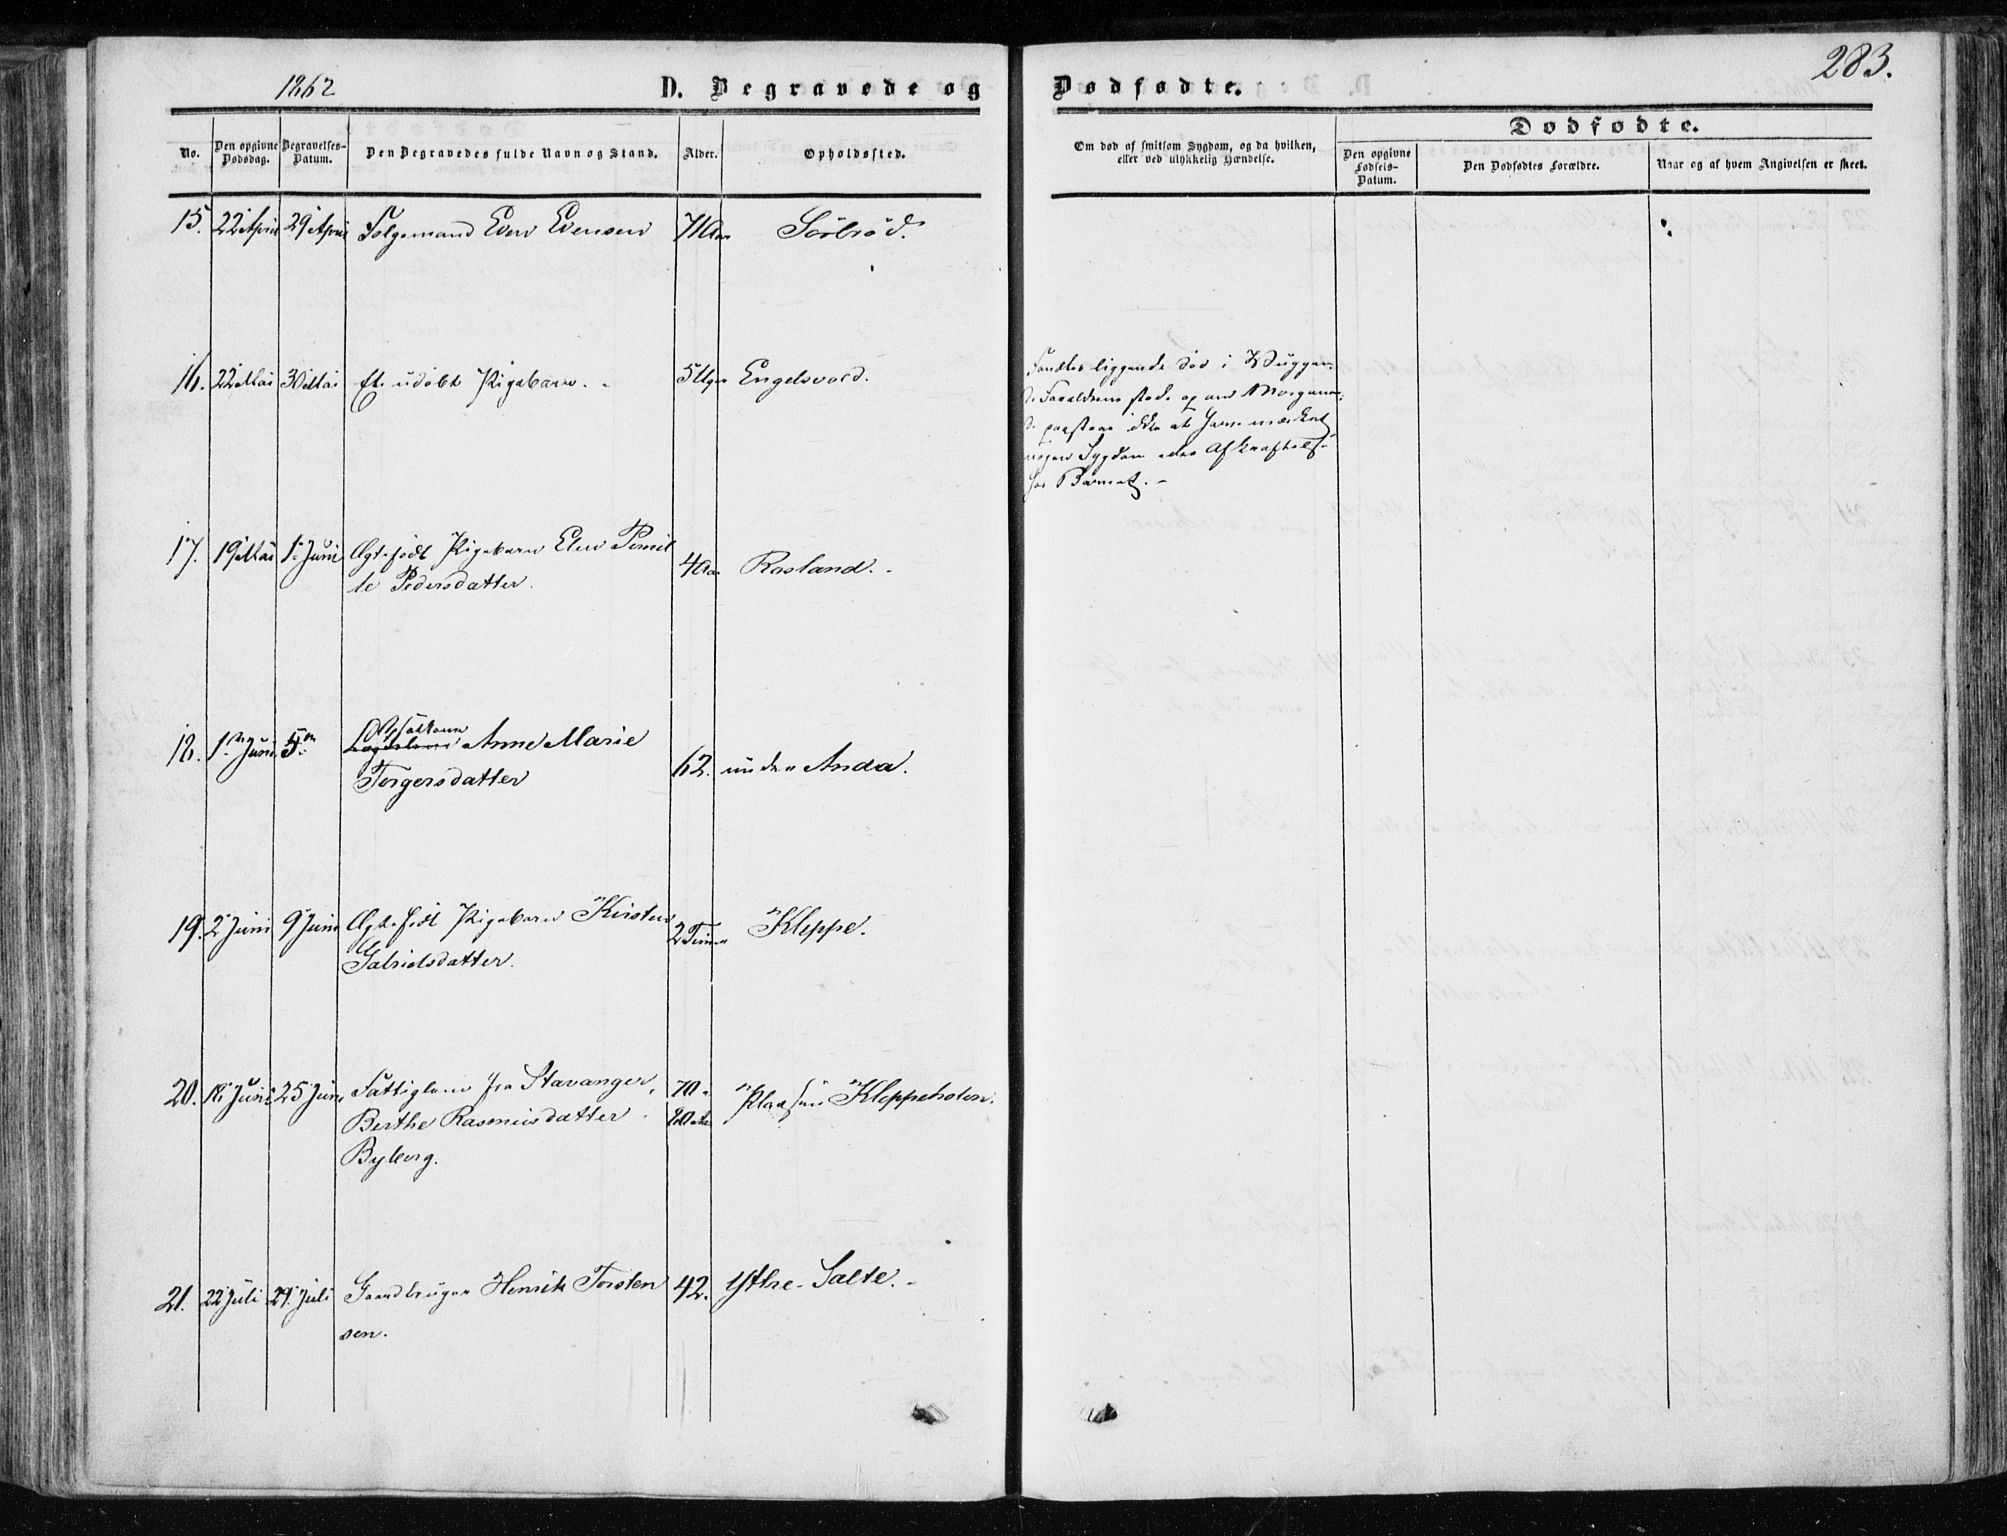 1862
D. Begravede og
Dødfødte.
283.
No.
Den opgivne Dødsdag.
Begravelses-Datum.
Den Begravedes fulde Navn og Stand.
Alder.
Opholdssted.
Om død af smitsom Sygdom, og da hvilken,
eller ved ulykkelig Hændelse.
Dødfødte.
Den opgivne Fødsels-Datum.
Den Dødfødtes Forældre.
Naar og af hvem Angivelsen er skeet.
15. 22 April 29 April Folgemand Even Evensen 71 Aar Sørbrød.
16. 22 Mai 30 Mai Et udøbt Pigebarn. 5 Uger Engelsvord.
Fandtes liggende død i Vuggen,
da Forældrene stode op om Morgenen;
de paastaae ikke at have mærket
nogen Sygdom eller Afkræftelse
hos Barnet.
17. 19 Mai 1 Juni Ægtefødt Pigebarn Elen Pernil
le Pedersdatter. 4 Aar Rosland.
18. 1ste Juni 5te Anne Marie
Torgersdatter 62. under Anda.
19. 2 Juni 9 Juni Ægtefødt Pigebarn Kirsten
Gabrielsdatter. 2 Timer Kleppe.
20. 16 Juni 25 Juni Fattiglem fra Stavanger,
Berthe Rasmusdatter
Byberg. 70 a 80 Aar Kleppeholen.
21. 22 Juli 29 Juli Gaardbruger Henrik Torsten
sen. 42. Ythre Salte.